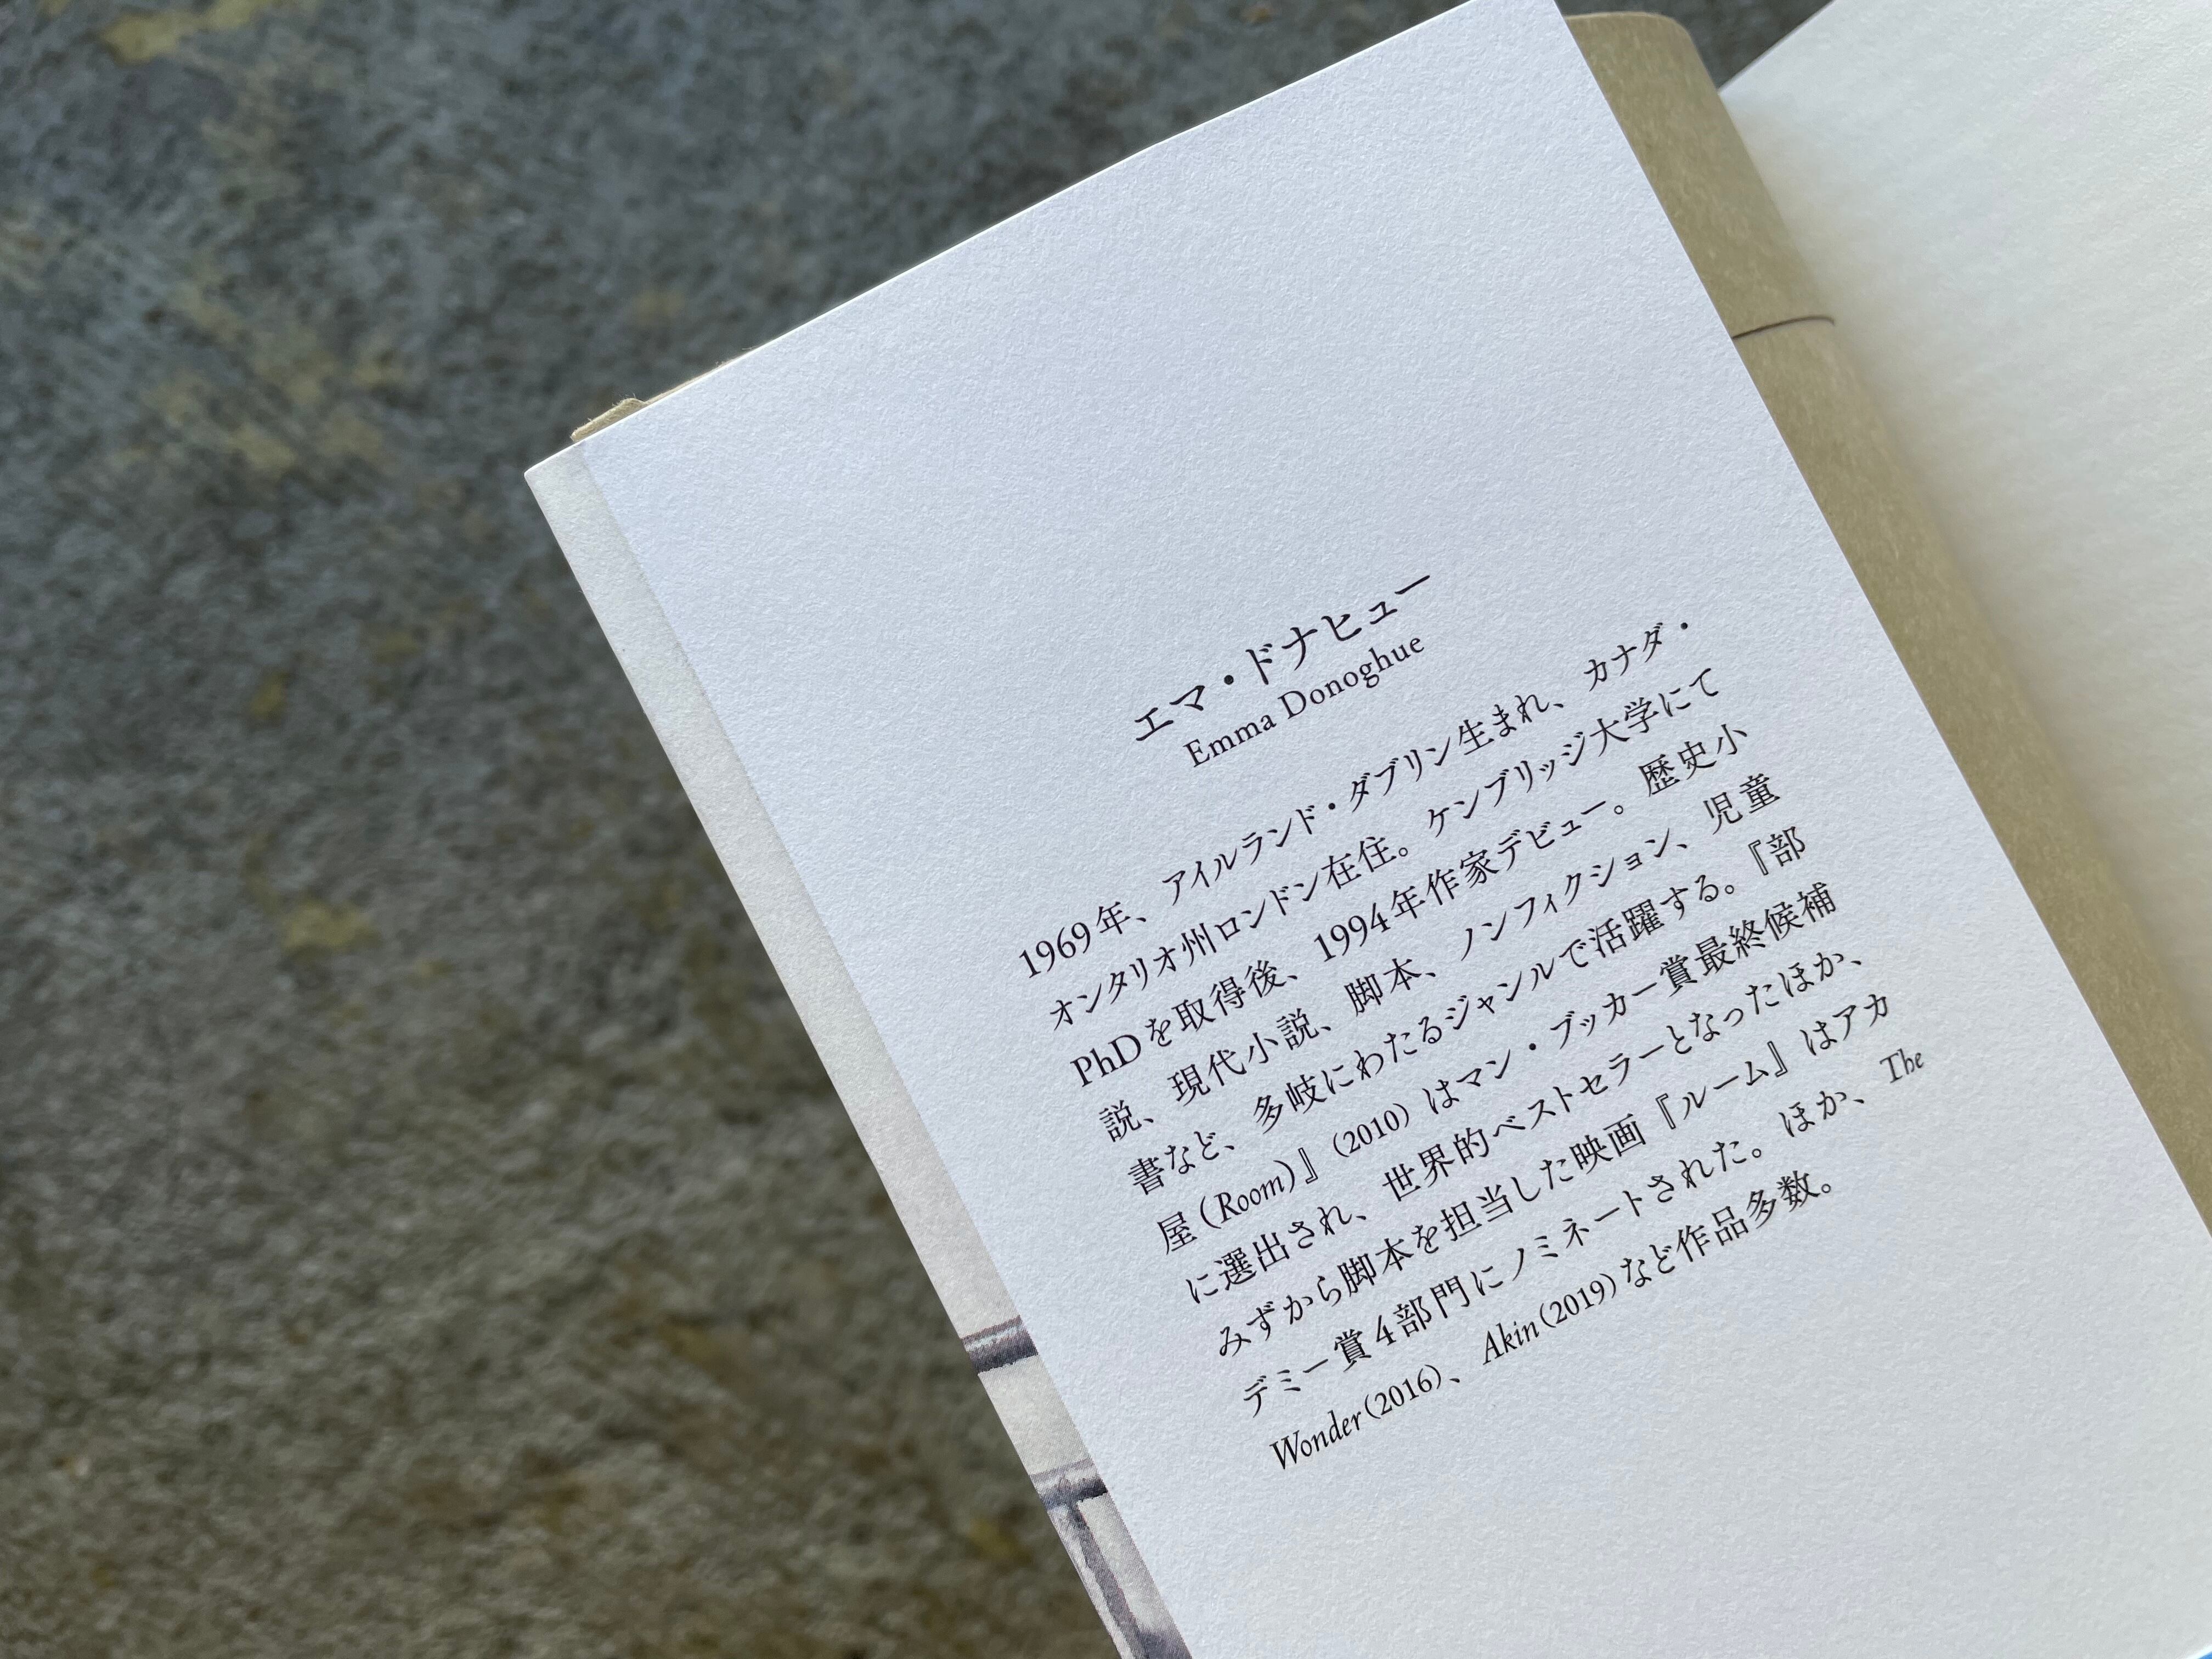 エマ・ドナヒュー
Emma Donoghue
1969年、アイルランド・ダブリン生まれ、カナダ・
オンタリオ州ロンドン在住。ケンブリッジ大学にて
PhDを取得後、1994年作家デビュー。歴史小
説、現代小説、脚本、ノンフィクション、児童
書など、多岐にわたるジャンルで活躍する。『部
屋（Room）』（2010）はマン・ブッカー賞最終候補
に選出され、世界的ベストセラーとなったほか、
みずから脚本を担当した映画『ルーム』はアカ
デミー賞4部門にノミネートされた。ほか、The
Wonder（2016）、Akin（2019）など作品多数。